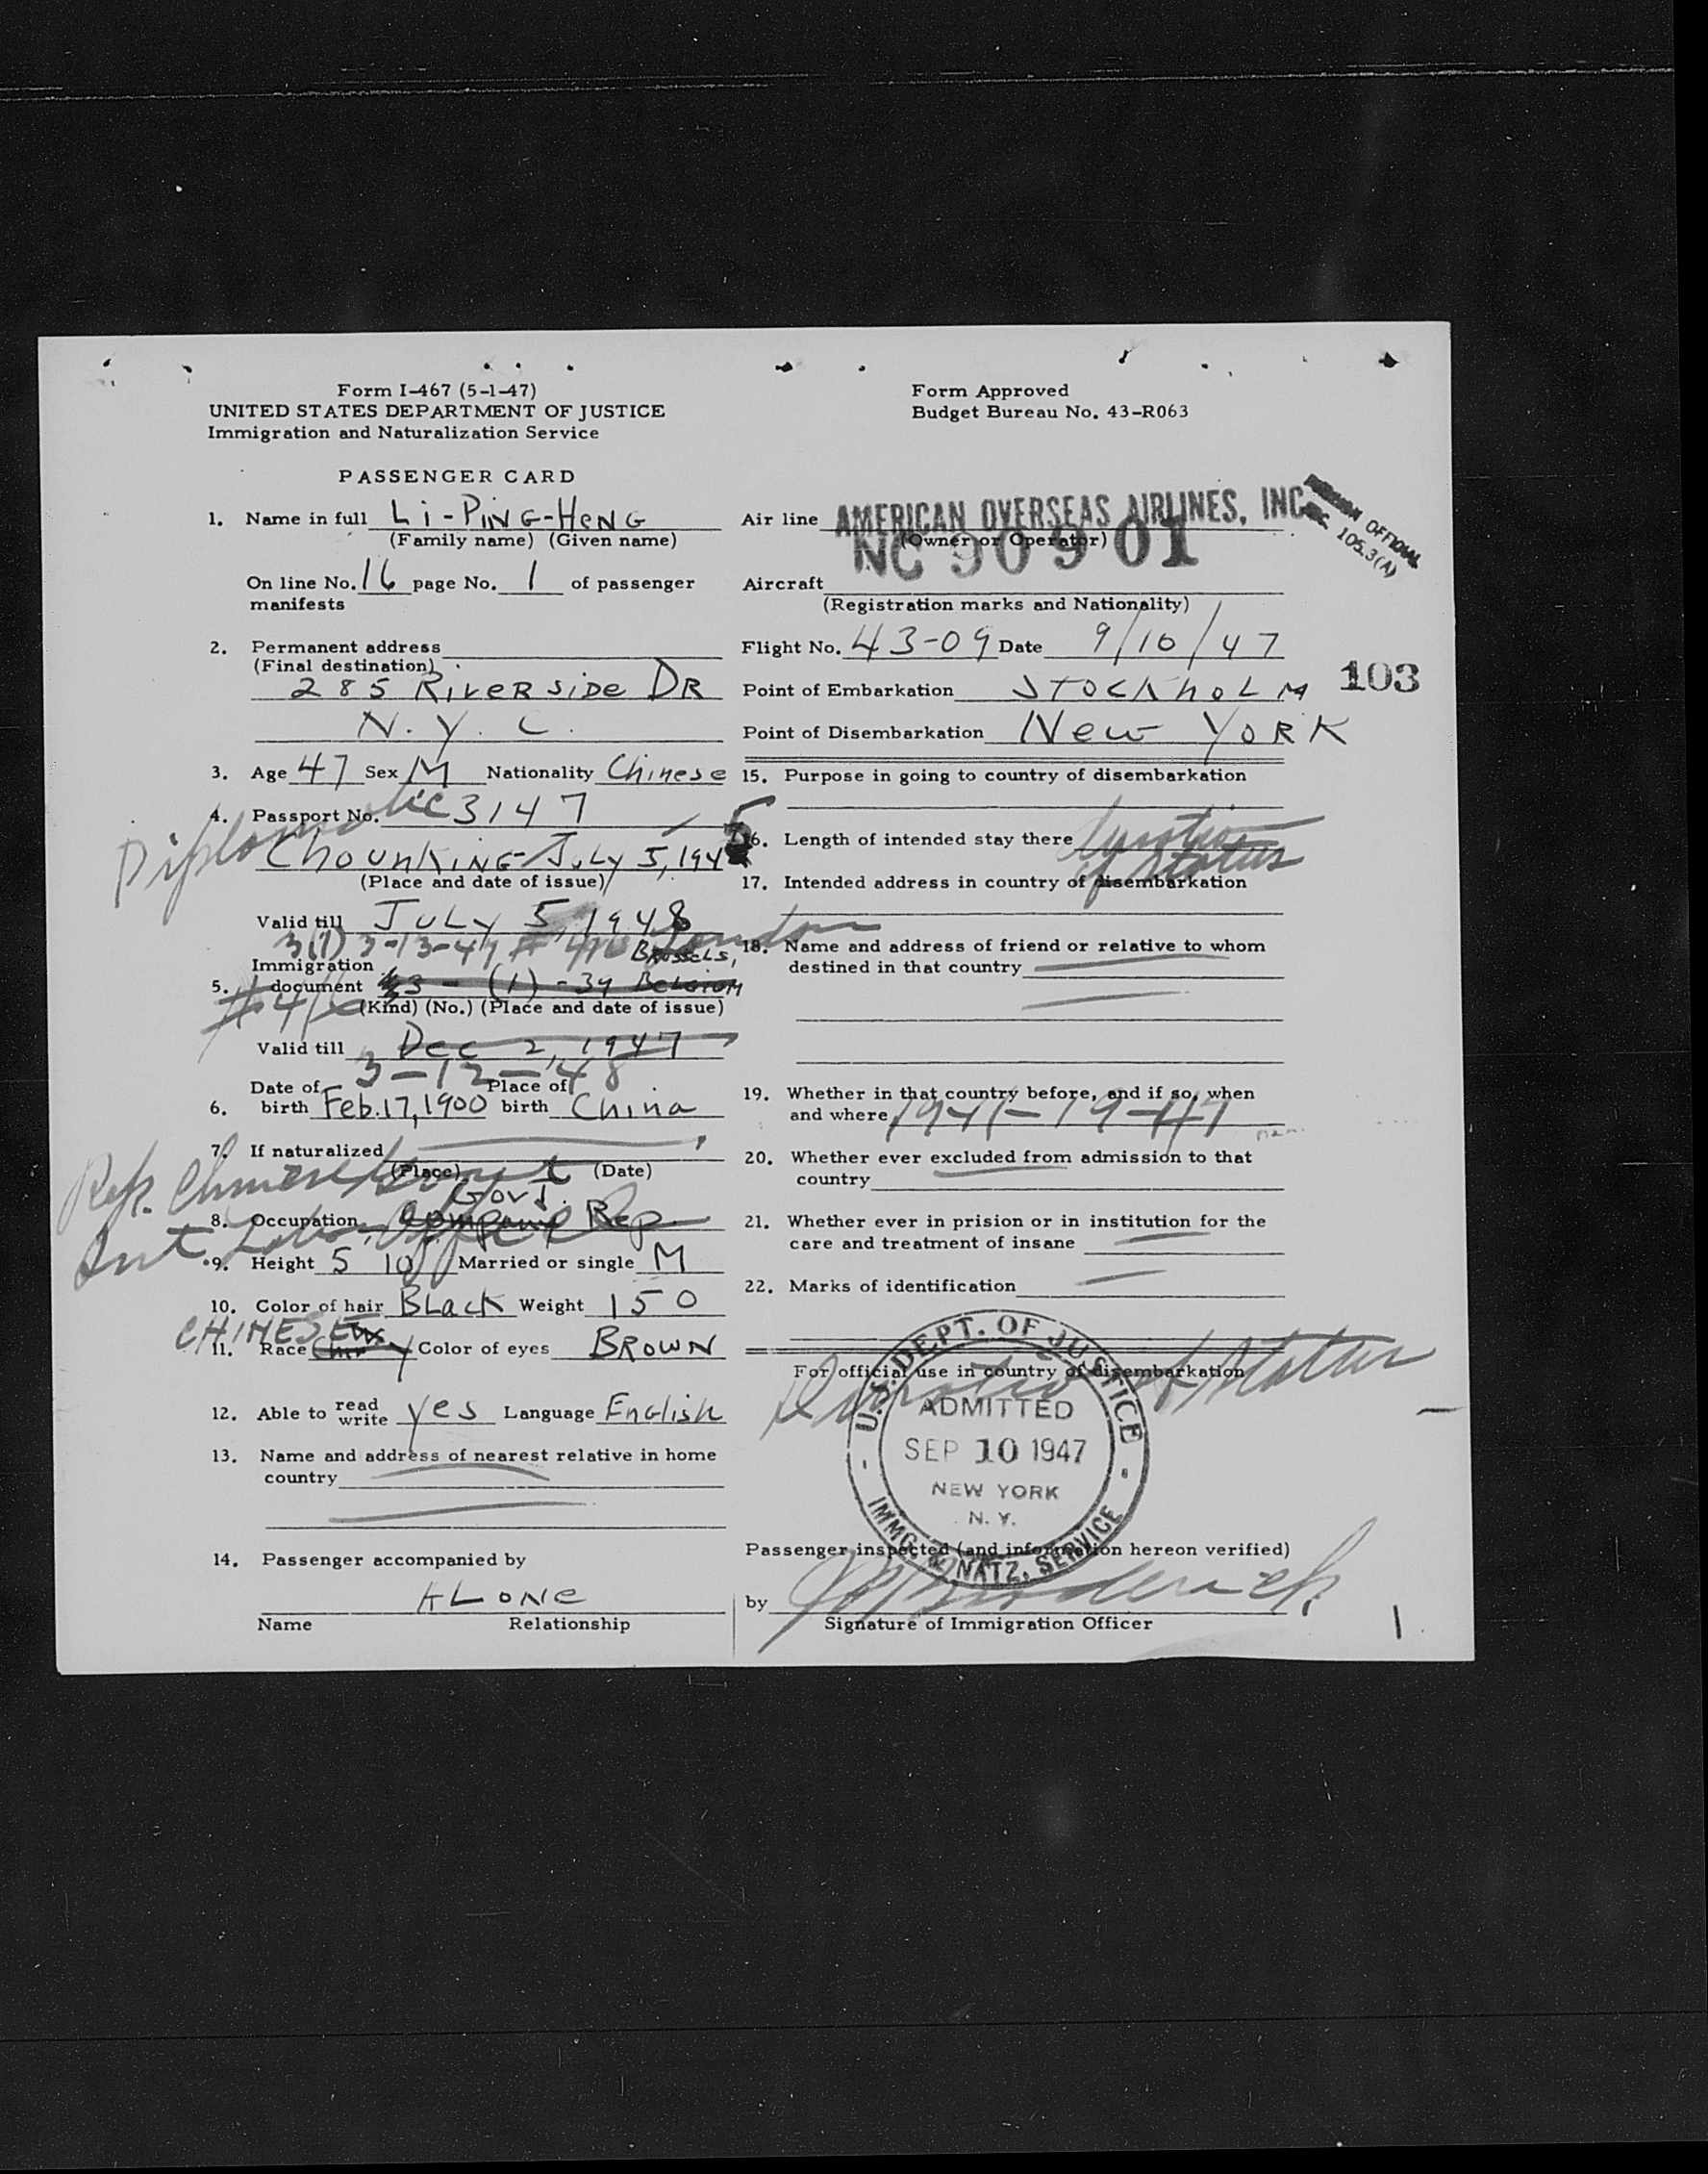 Form I-467 (5-1-47)
UNITED STATES DEPARTMENT OF JUSTICE
Immigration and Naturalization Service
Form Approved
Budget Bureau No. 43-R063
PASSENGER CARD
1. Name in full Li-PiNG-HeNG
(Family name) (Given name)
On line No. 16 page No. 1 of passenger
manifests
2. Permanent address
(Final destination)
285 RiveRSiDe DR
N.Y.C.
3. Age 47 Sex M Nationality Chinese
4. Passport No. 3147
Diplomatic
ChounKiNG-JuLy 5, 194
(Place and date of issue)
Valid till JuLy 5, 1948
3(1) 3-13-47 London
BRusseLs,
Immigration
5. document 3 - (1) - 39 BeLGiuM
(Kind) (No.) (Place and date of issue)
Valid till Dec 2, 1947
3-12-48
Date of Place of
6. birth Feb. 17, 1900 birth China
7. If naturalized
(Place) (Date)
Rep. Chinese Govt
Govt.
8. Occupation Rep.
Int. Labor Office
9. Height 5 10 Married or single M
10. Color of hair BLacK Weight 150
CHINESE
11. Race Color of eyes BROWN
12. Able to read write yes Language ENGLish
13. Name and address of nearest relative in home
country
14. Passenger accompanied by
ALONe
Name Relationship
Air line AMERICAN OVERSEAS AIRLINES, INC
(Owner or Operator)
NC 90901
Aircraft
(Registration marks and Nationality)
105.3(A)
Flight No. 43-09 Date 9/10/47
Point of Embarkation STOCKhOLM
103
Point of Disembarkation New YORK
15. Purpose in going to country of disembarkation
16. Length of intended stay there Duration
of Status
17. Intended address in country of disembarkation
18. Name and address of friend or relative to whom
destined in that country
19. Whether in that country before, and if so, when
and where 1941-19-47
20. Whether ever excluded from admission to that
country
21. Whether ever in prision or in institution for the
care and treatment of insane
22. Marks of identification
For official use in country of disembarkation
Duration of Status
U.S. DEPT. OF JUSTICE
ADMITTED
SEP 10 1947
NEW YORK
N. Y.
IMMG. & NATZ. SERVICE
Passenger inspected (and information hereon verified)
by
Signature of Immigration Officer